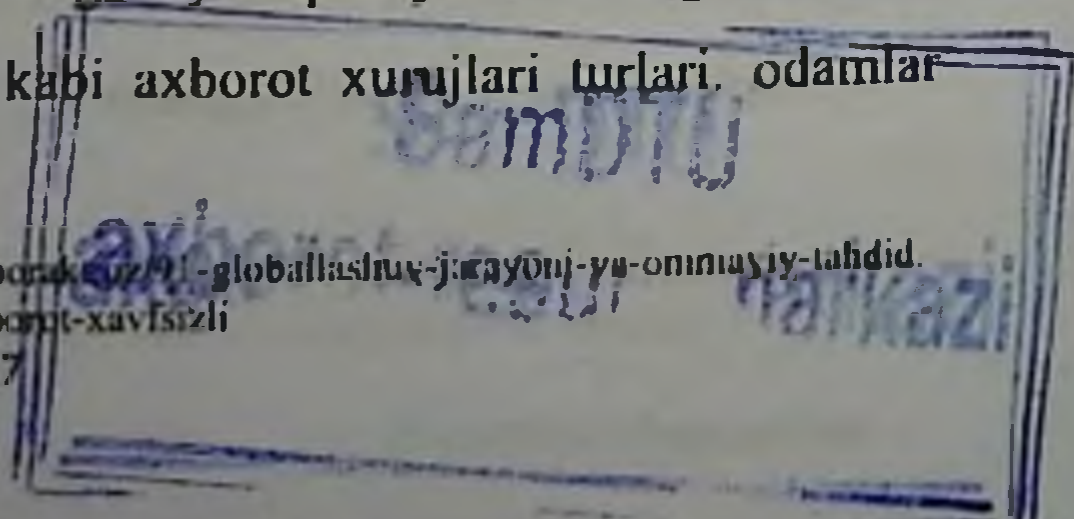 kabi axborot xurujlari turlari. odamlar
SamDTU
axborot markazi
-globallashuv-jarayonj-va-ommaviy-tahdid.
-xavfsizli
7